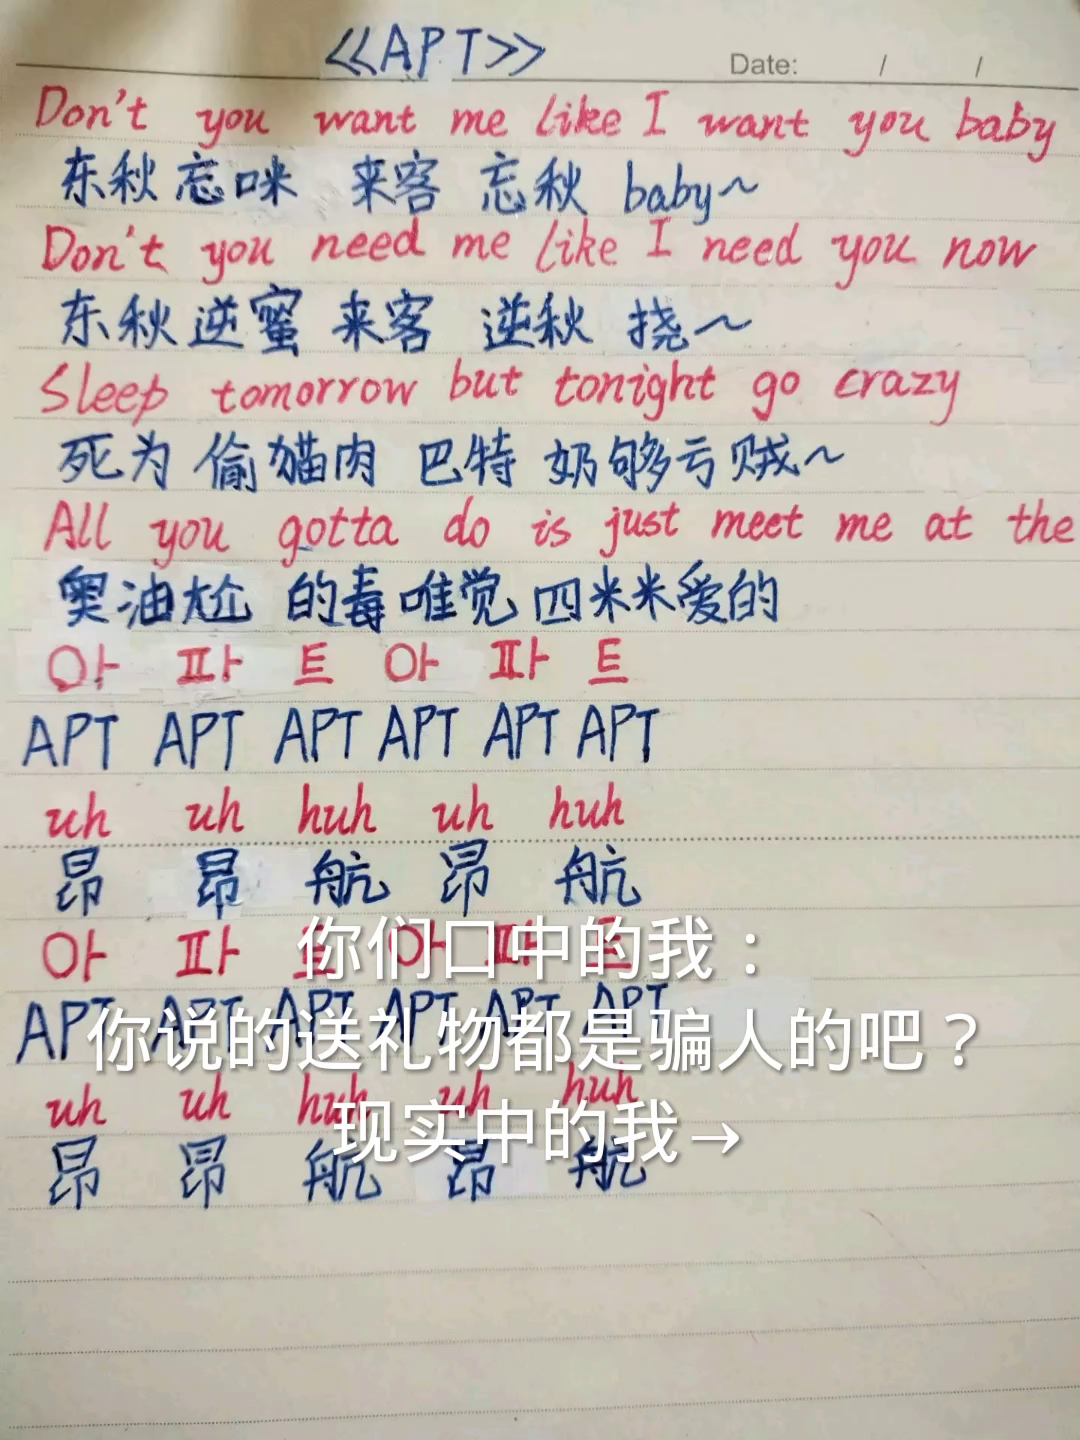 <<APT>>
Date: / /
Don't you want me like I want you baby
东秋忘咪 来客 忘秋 baby~
Don't you need me like I need you now
东秋逆蜜 来客 逆秋 挠~
Sleep tomorrow but tonight go crazy
死为 偷猫肉 巴特 奶够亏贼~
All you gotta do is just meet me at the
奥油尬 的毒唯觉四米米爱的
아 파 트 아 파 트
APT APT APT APT APT APT
uh uh huh uh huh
昂 昂 航 昂 航
아 파 트 아 파 트
你们口中的我：
APT APT APT APT APT APT
你说的送礼物都是骗人的吧？
uh uh huh uh huh
现实中的我→
昂 昂 航 昂 航